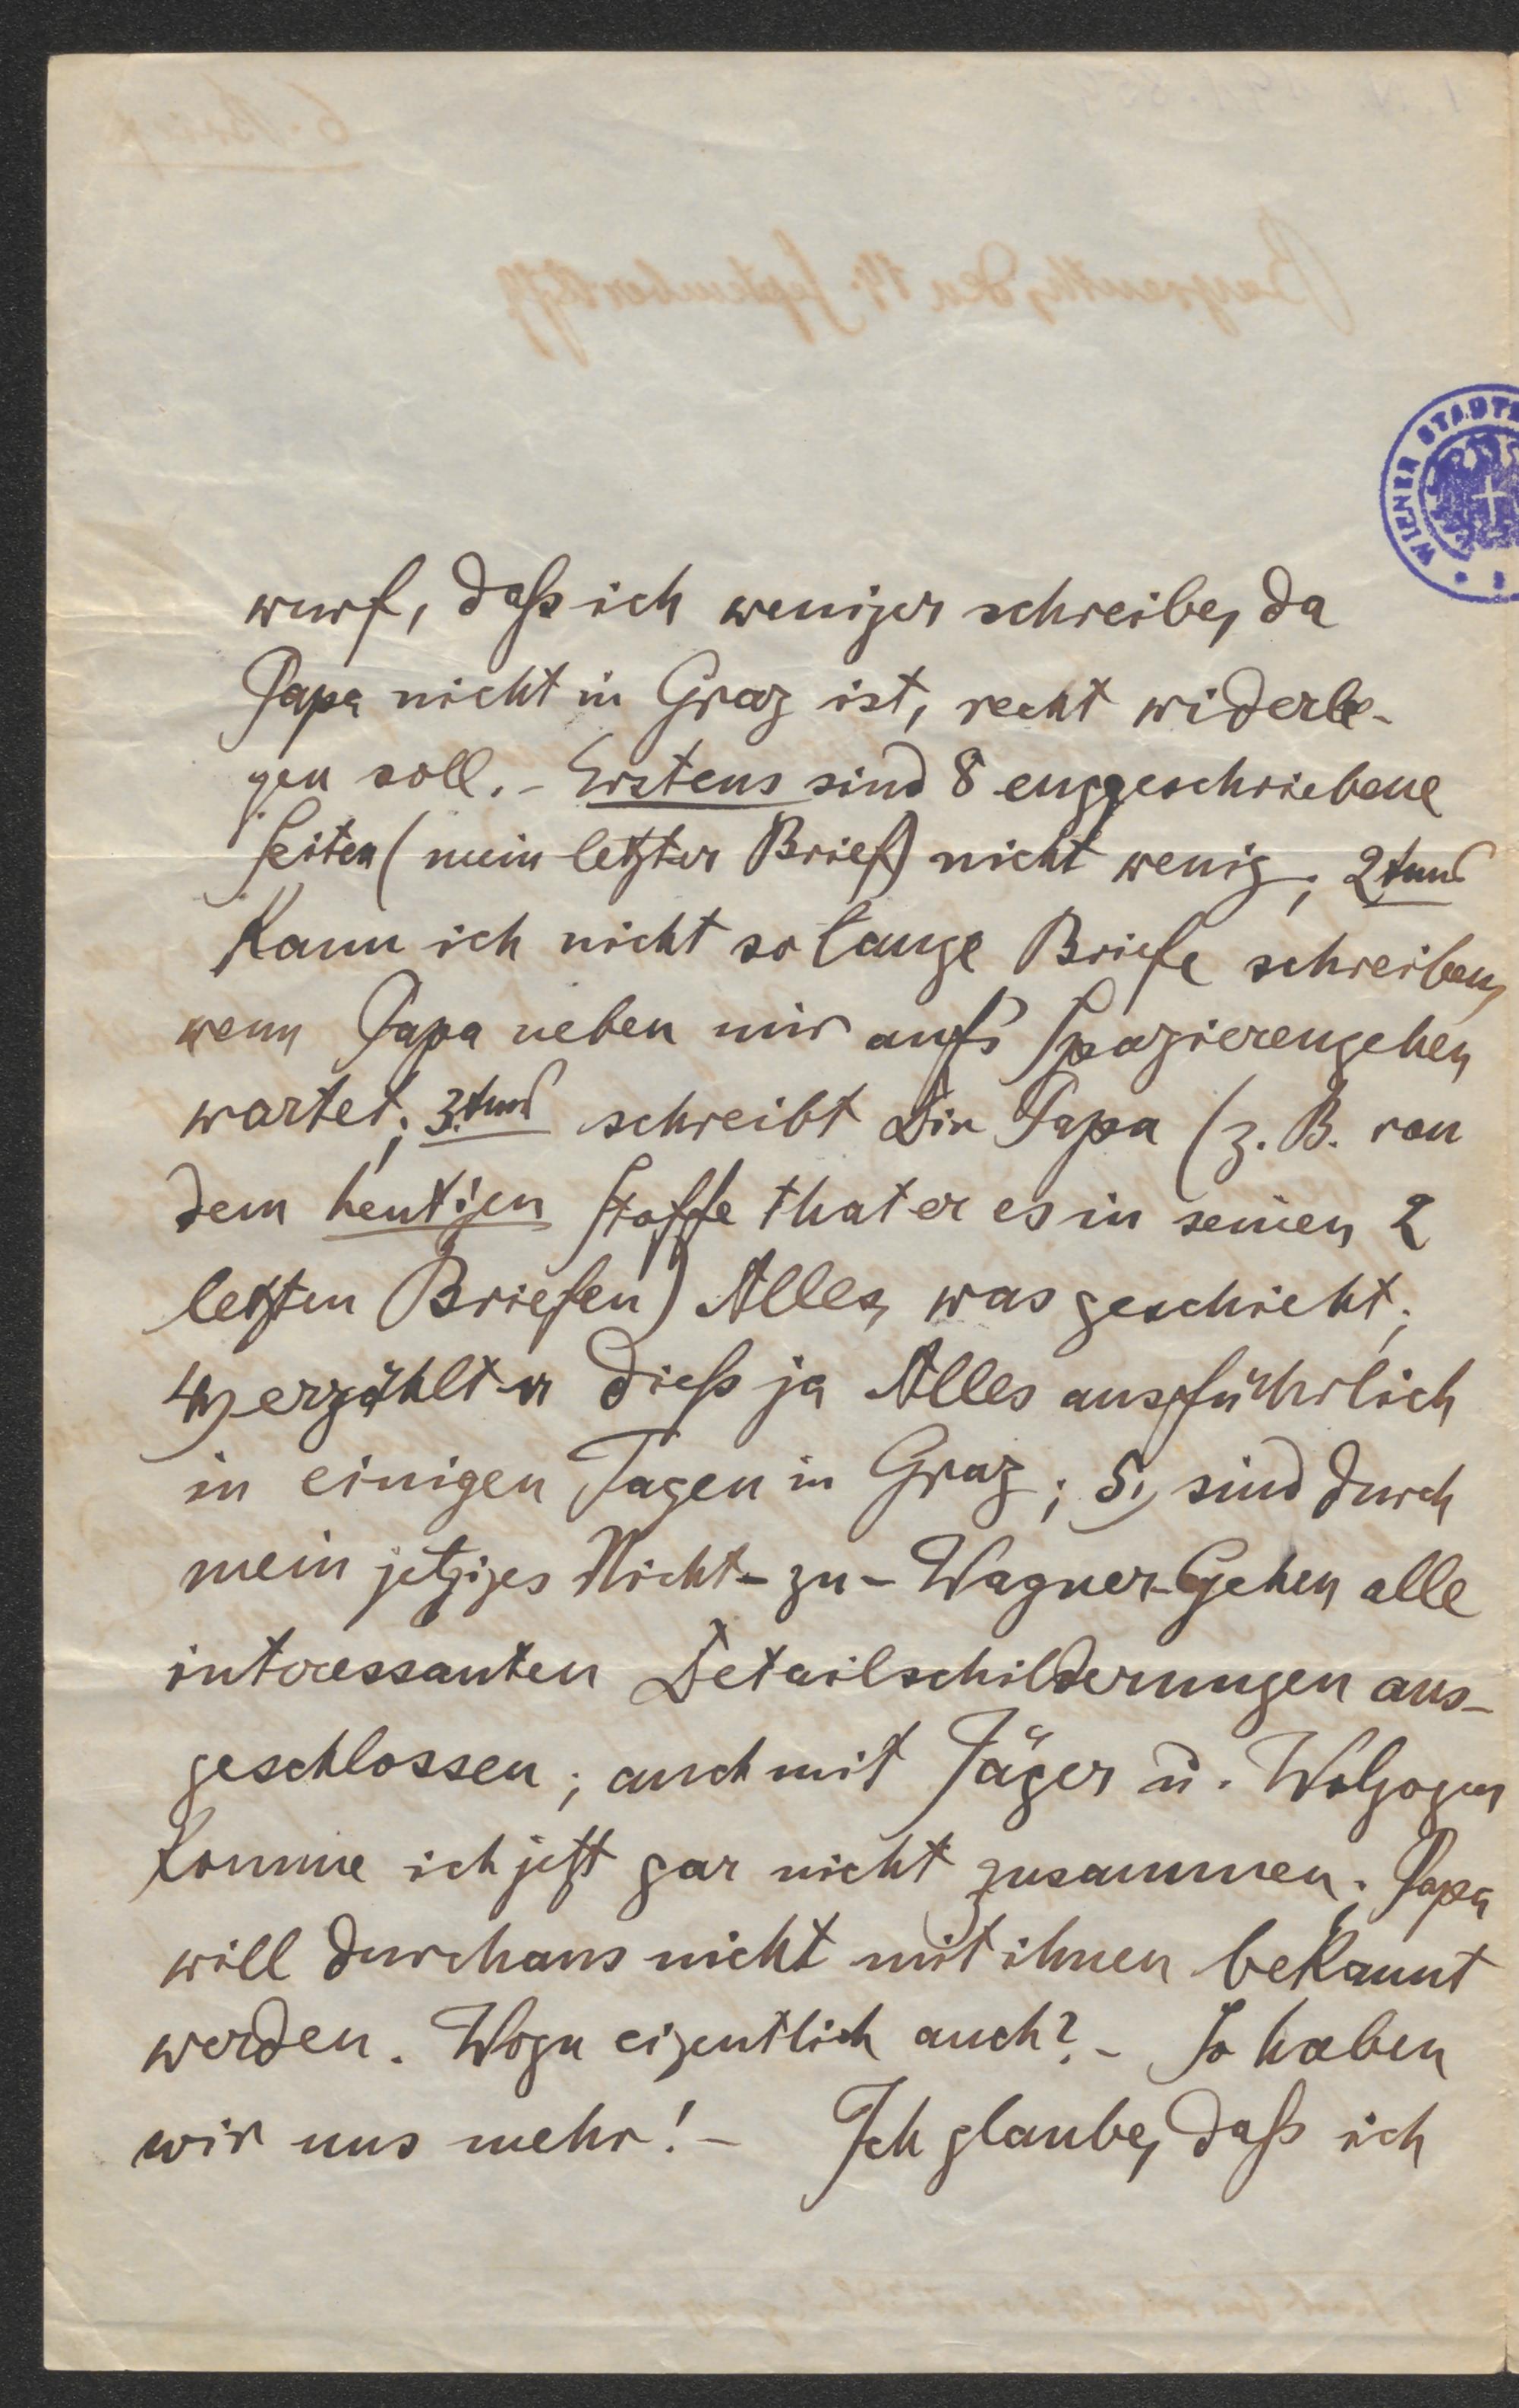 wurf, daß ich weniger schreibe, da
Papa nicht in Graz ist, recht widerle-
gen soll. – Erstens sind 8 enggeschriebene
Seiten (mein letzter Brief) nicht wenig; 2tens
kann ich nicht so lange Briefe schreiben,
wenn Papa neben mir auf's Spazierengehen
wartet; 3.tens schreibt Dir Papa (z. B. von
dem heutigen Stoffe that er es in seinen 2
letzten Briefen) Alles, was geschieht;
4) erzählt er dieß ja Alles ausführlich
in einigen Tagen in Graz; 5.) sind durch
mein jetziges Nicht-zu-Wagner-Gehen alle
interessanten Detailschilderungen aus-
geschlossen; auch mit Jäger u. Wolzogen
komme ich jetzt gar nicht zusammen; Papa
will durchaus nicht mit ihnen bekannt
werden. Wozu eigentlich auch? – So haben
wir uns mehr! – Ich glaube, daß ich
WIENER STADT